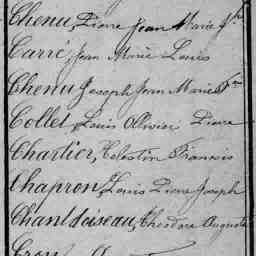 Chenu, Pierre Jean Marie
Carré, Jean Marie Louis
Chenu Joseph Jean Marie
Collet, Louis Olivier Pierre
Chartier, Célestin Francis
Chapron, Louis Pierre Joseph
Chantdoiseau, Théodore Auguste